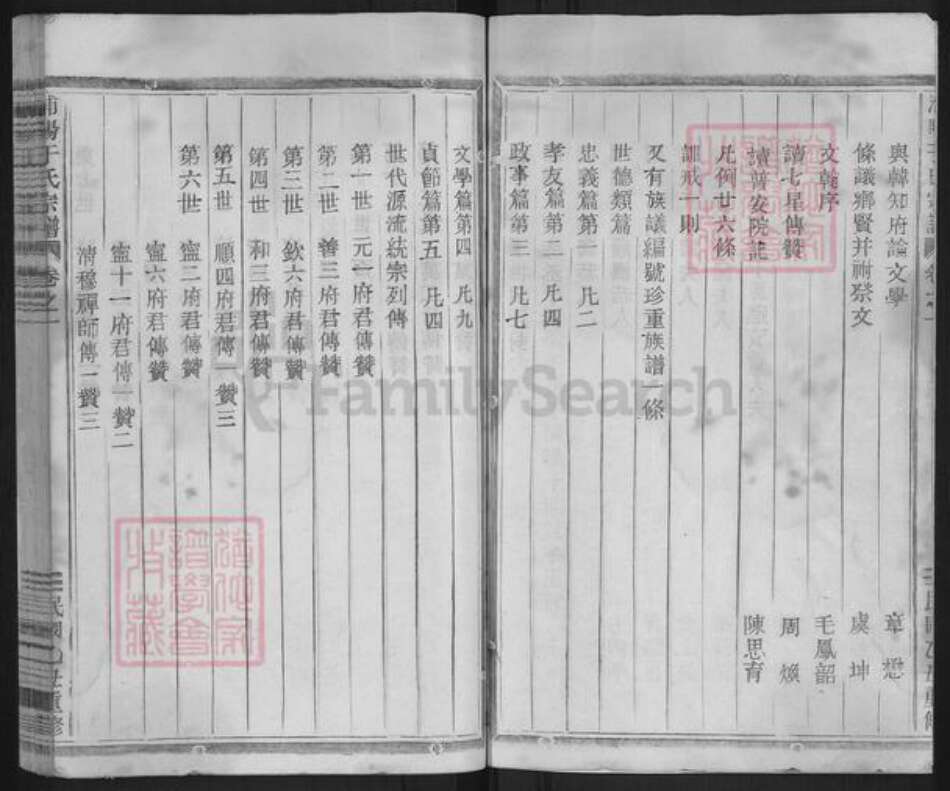 與韓知府論文學 章懋
條議鄉賢并祔祭文 虞坤
文乾序 毛鳳韶
讀七星傳贊 周煥
讀普安院記 陳思育
凡例廿六條
訓戒一則
又有族議編號珍重族譜一條
世德類篇
忠義篇第一 凡二
孝友篇第二 凡四
政事篇第三 凡七
文學篇第四 凡九
貞節篇第五 凡四
世代源流統宗列傳
第一世 元一府君傳贊
第二世 善三府君傳贊
第三世 欽六府君傳贊
第四世 和三府君傳贊
第五世 順四府君傳一贊三
第六世 寧二府君傳贊
寧六府君傳贊
寧十一府君傳一贊二
清穆禪師傳一贊三
浦陽于氏宗譜 卷之一 民國乙丑重修
FamilySearch